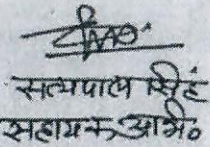 सत्यपाल सिंह
सहायक अभि०